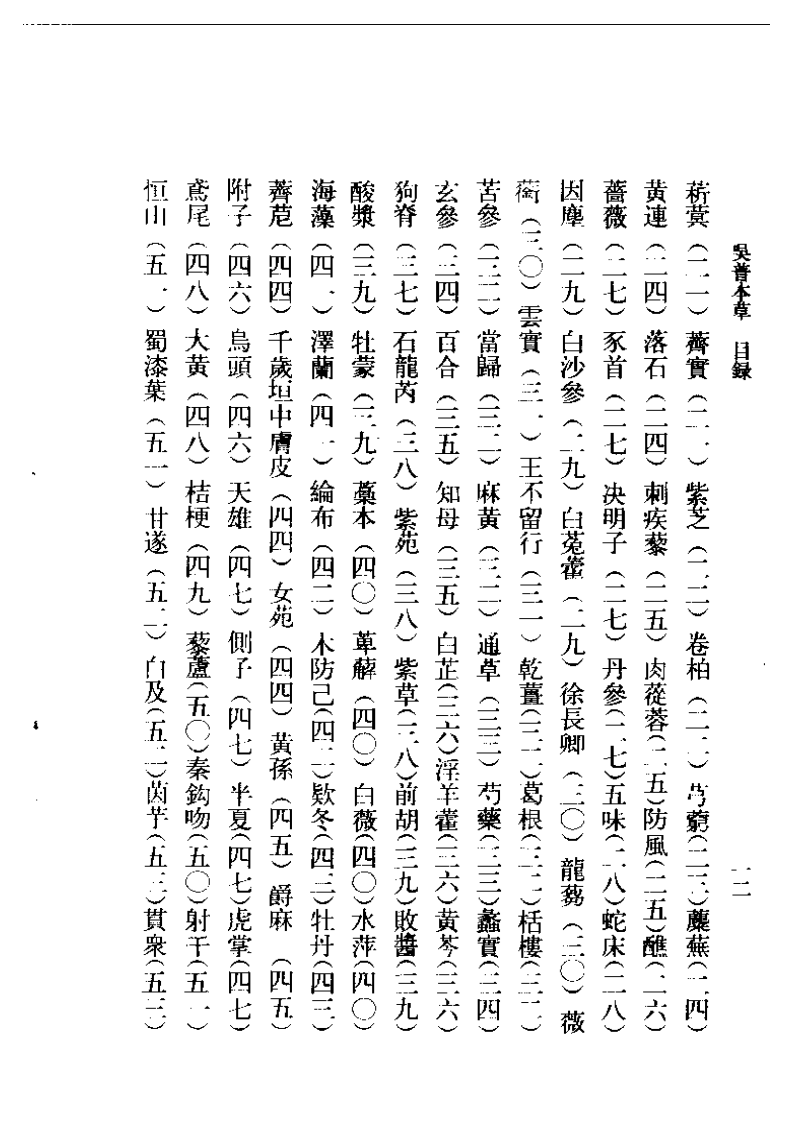 吳普本草　目録
一二
菥蓂（二一）薺實（二一）紫芝（二二）卷柏（二二）芎藭（二三）蘪蕪（二四）
黃連（二四）落石（二四）刺疾藜（二五）肉蓯蓉（二五）防風（二五）醮（二六）
薔薇（二七）豕首（二七）决明子（二七）丹參（二七）五味（二八）蛇床（二八）
因塵（二九）白沙參（二九）白菟藿（二九）徐長卿（三〇）龍芻（三〇）薇
蕪（三〇）雲實（三一）王不留行（三一）乾薑（三二）葛根（三二）栝樓（三二）
苦參（三二）當歸（三二）麻黃（三二）通草（三三）芍藥（三三）蠡實（三四）
玄參（三四）百合（三五）知母（三五）白芷（三六）淫羊藿（三六）黃芩（三六）
狗脊（三七）石龍芮（三八）紫苑（三八）紫草（三八）前胡（三九）敗醬（三九）
酸漿（三九）牡蒙（三九）藁本（四〇）萆薢（四〇）白薇（四〇）水萍（四〇）
海藻（四一）澤蘭（四一）綸布（四二）木防己（四二）欵冬（四三）牡丹（四三）
薺苨（四四）千歲垣中膚皮（四四）女苑（四四）黃孫（四五）爵麻（四五）
附子（四六）烏頭（四六）天雄（四七）側子（四七）半夏（四七）虎掌（四七）
鳶尾（四八）大黃（四八）桔梗（四九）藜蘆（五〇）秦鈎吻（五〇）射干（五一）
恒山（五一）蜀漆葉（五一）甘遂（五二）白及（五二）茵芋（五三）貫衆（五三）